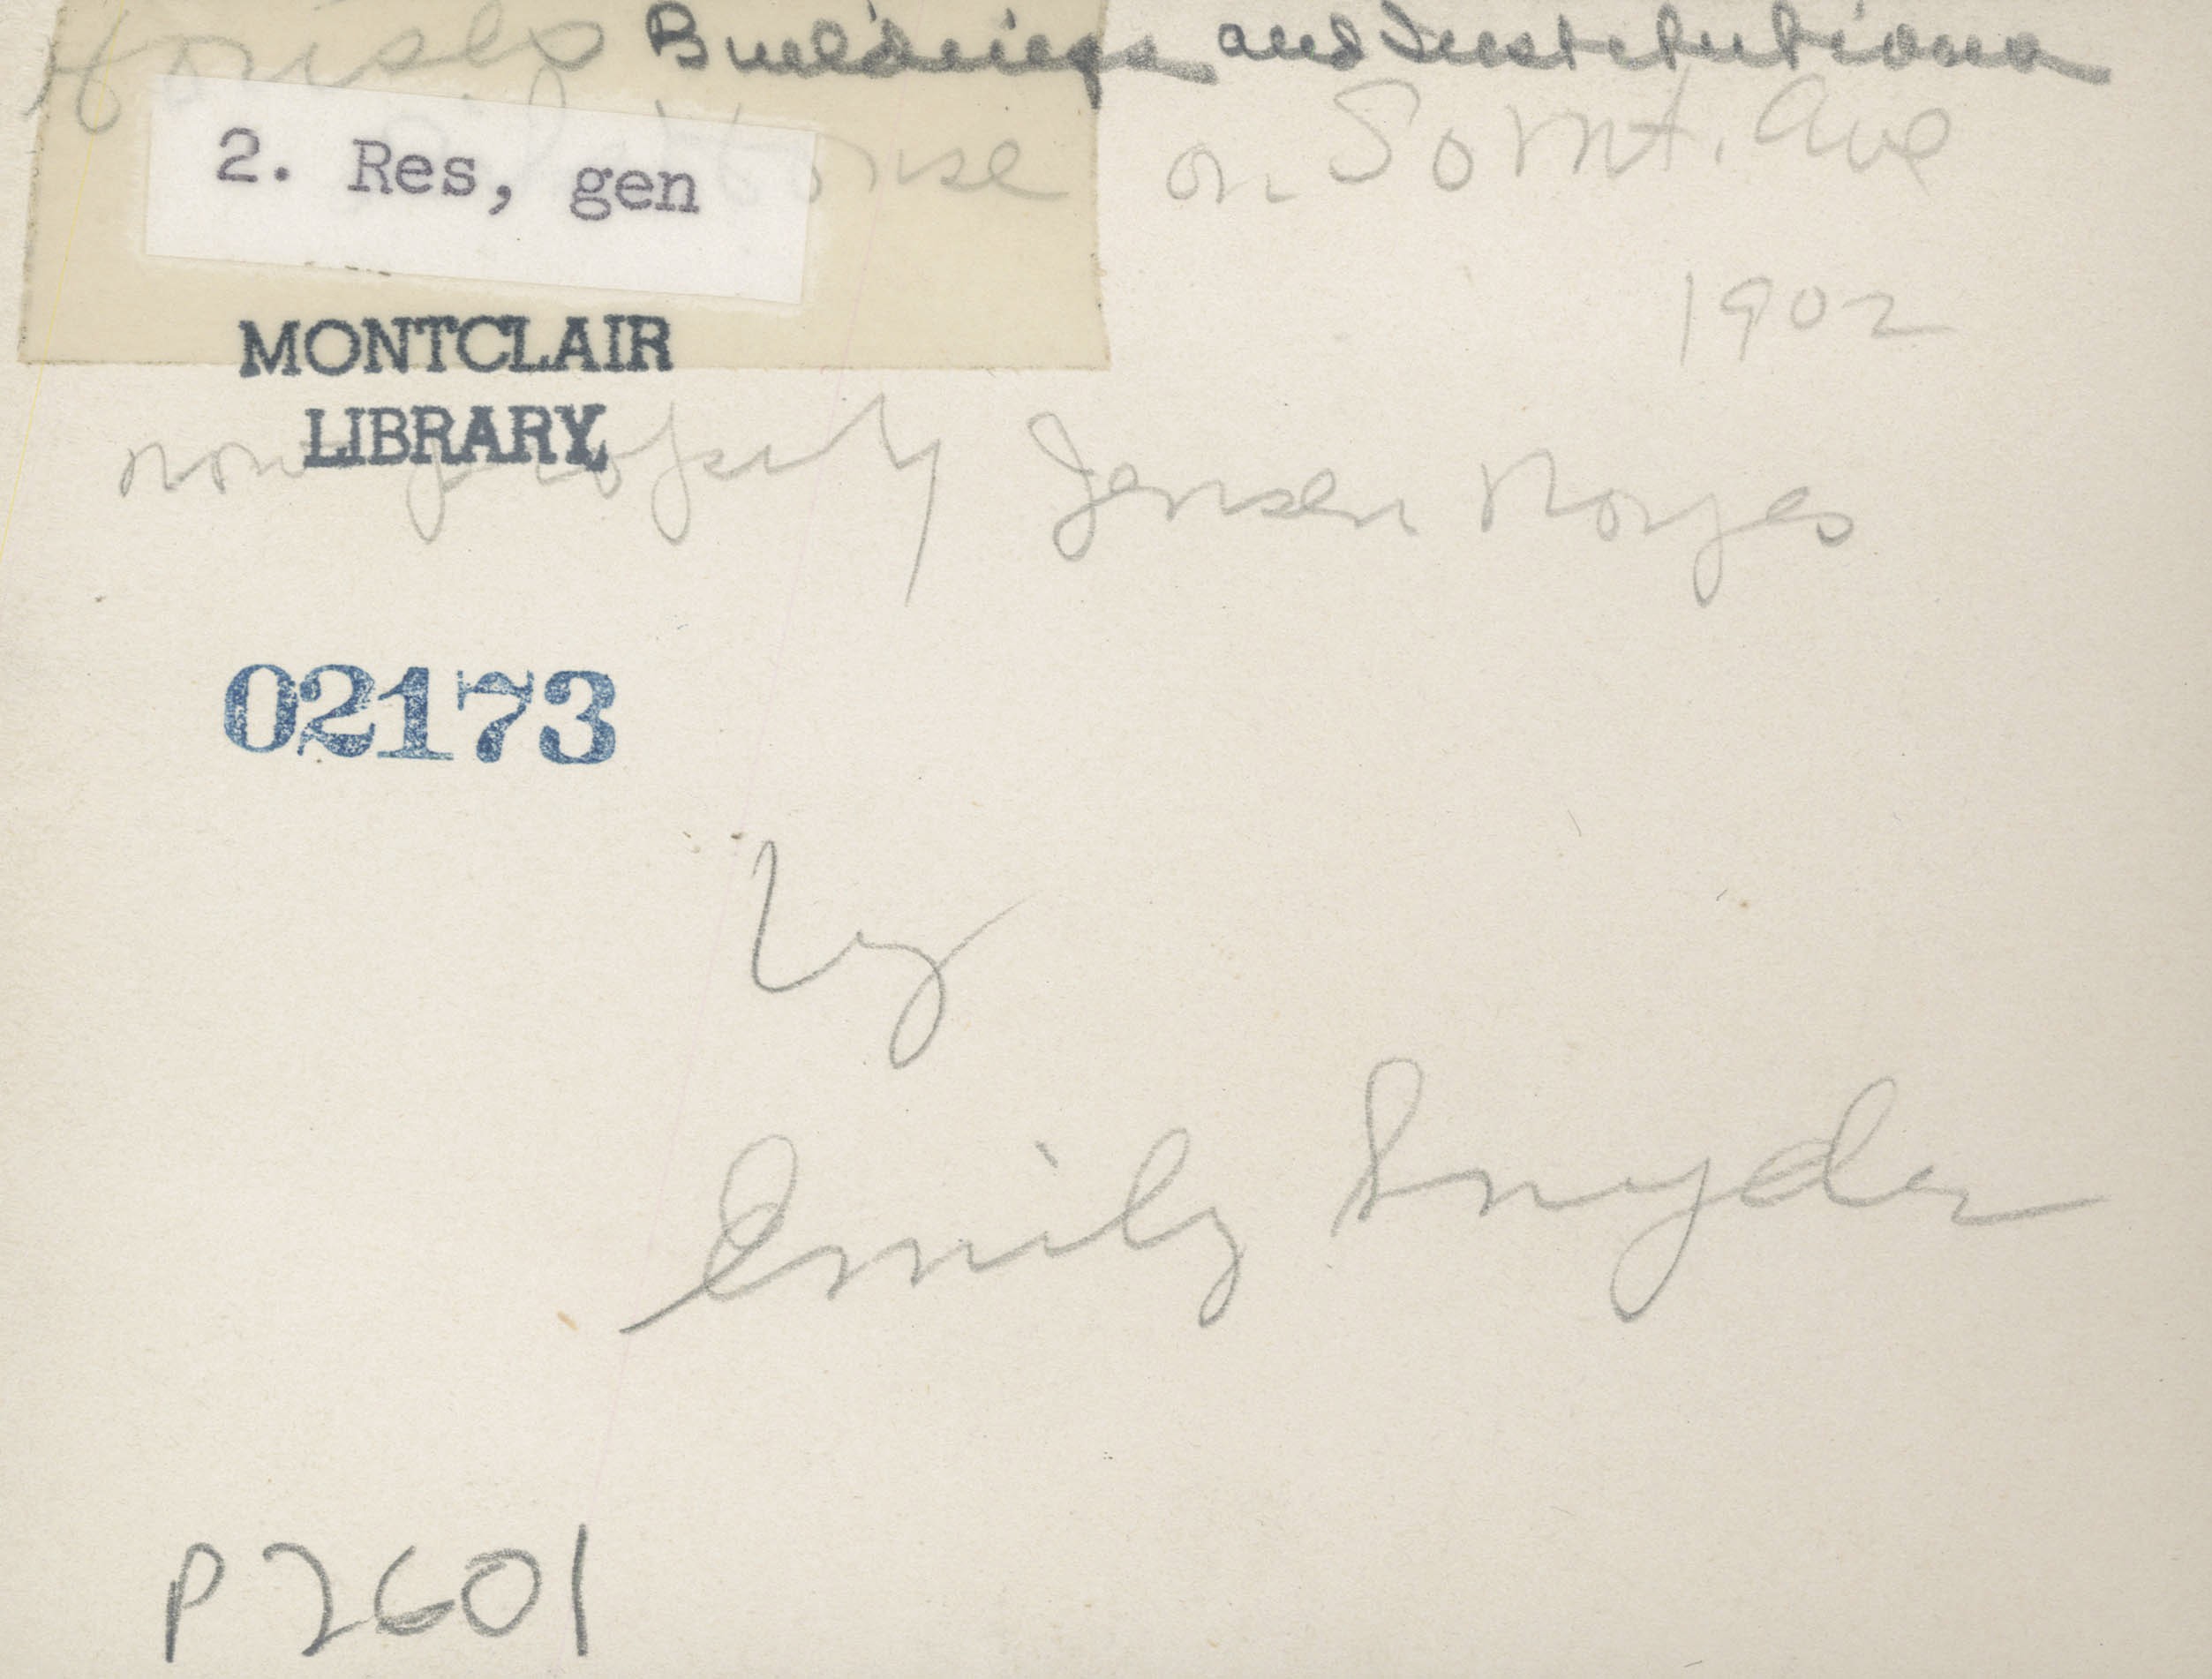 Houses Buildings and Institutions
House on So Mt. Ave
2. Res, gen
1902
MONTCLAIR
LIBRARY
now property Jensen Noyes
02173
by
Emily Snyder
P2601